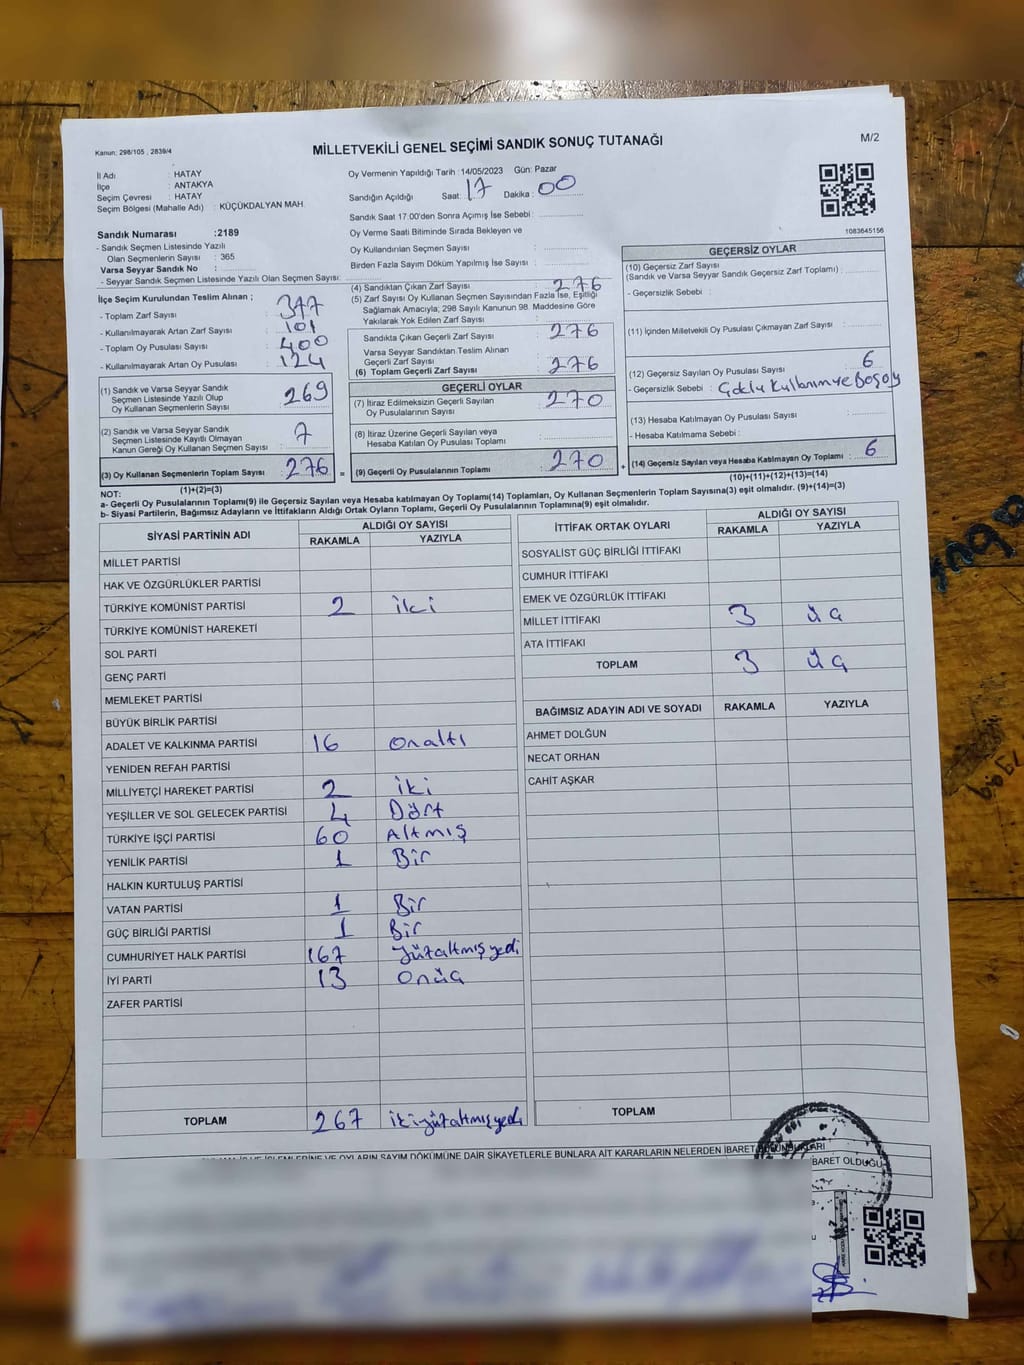 Kanun: 298/105 , 2839/4
MİLLETVEKİLİ GENEL SEÇİMİ SANDIK SONUÇ TUTANAĞI
M/2
İl Adı : HATAY
İlçe : ANTAKYA
Seçim Çevresi : HATAY
Seçim Bölgesi (Mahalle Adı) : KÜÇÜKDALYAN MAH.
Sandık Numarası :2189
- Sandık Seçmen Listesinde Yazılı
Olan Seçmenlerin Sayısı : 365
Varsa Seyyar Sandık No :
- Seyyar Sandık Seçmen Listesinde Yazılı Olan Seçmen Sayısı:
Oy Vermenin Yapıldığı Tarih : 14/05/2023 Gün: Pazar
Sandığın Açıldığı Saat: 17 Dakika : 00
Sandık Saat 17.00'den Sonra Açımış İse Sebebi :
Oy Verme Saati Bitiminde Sırada Bekleyen ve
Oy Kullandırılan Seçmen Sayısı :
Birden Fazla Sayım Döküm Yapılmış İse Sayısı :
1083645156
İlçe Seçim Kurulundan Teslim Alınan ;
- Toplam Zarf Sayısı : 377
- Kullanılmayarak Artan Zarf Sayısı : 101
- Toplam Oy Pusulası Sayısı : 400
- Kullanılmayarak Artan Oy Pusulası : 124
(1) Sandık ve Varsa Seyyar Sandık
Seçmen Listesinde Yazılı Olup
Oy Kullanan Seçmenlerin Sayısı : 269
(2) Sandık ve Varsa Seyyar Sandık
Seçmen Listesinde Kayıtlı Olmayan
Kanun Gereği Oy Kullanan Seçmen Sayısı : 7
(3) Oy Kullanan Seçmenlerin Toplam Sayısı : 276 =
(1)+(2)=(3)
(4) Sandıktan Çıkan Zarf Sayısı : 276
(5) Zarf Sayısı Oy Kullanan Seçmen Sayısından Fazla İse, Eşitliği
Sağlamak Amacıyla; 298 Sayılı Kanunun 98. Maddesine Göre
Yakılarak Yok Edilen Zarf Sayısı :
Sandıkta Çıkan Geçerli Zarf Sayısı : 276
Varsa Seyyar Sandıktan Teslim Alınan
Geçerli Zarf Sayısı
(6) Toplam Geçerli Zarf Sayısı : 276
GEÇERLİ OYLAR
(7) İtiraz Edilmeksizin Geçerli Sayılan
Oy Pusulalarının Sayısı : 270
(8) İtiraz Üzerine Geçerli Sayılan veya
Hesaba Katılan Oy Pusulası Toplamı :
(9) Geçerli Oy Pusulalarının Toplamı : 270 +
GEÇERSİZ OYLAR
(10) Geçersiz Zarf Sayısı
(Sandık ve Varsa Seyyar Sandık Geçersiz Zarf Toplamı) :
- Geçersizlik Sebebi :
(11) İçinden Milletvekili Oy Pusulası Çıkmayan Zarf Sayısı :
(12) Geçersiz Sayılan Oy Pusulası Sayısı : 6
- Geçersizlik Sebebi : Çoklu kullanım ve Boş oy
(13) Hesaba Katılmayan Oy Pusulası Sayısı :
- Hesaba Katılmama Sebebi :
(14) Geçersiz Sayılan veya Hesaba Katılmayan Oy Toplamı : 6
(10)+(11)+(12)+(13)=(14)
NOT:
a- Geçerli Oy Pusulalarının Toplamı(9) ile Geçersiz Sayılan veya Hesaba katılmayan Oy Toplamı(14) Toplamları, Oy Kullanan Seçmenlerin Toplam Sayısına(3) eşit olmalıdır. (9)+(14)=(3)
b- Siyasi Partilerin, Bağımsız Adayların ve İttifakların Aldığı Ortak Oyların Toplamı, Geçerli Oy Pusulalarının Toplamına(9) eşit olmalıdır.
SİYASİ PARTİNİN ADI ALDIĞI OY SAYISI
RAKAMLA YAZIYLA
MİLLET PARTİSİ
HAK VE ÖZGÜRLÜKLER PARTİSİ
TÜRKİYE KOMÜNİST PARTİSİ 2 iki
TÜRKİYE KOMÜNİST HAREKETİ
SOL PARTİ
GENÇ PARTİ
MEMLEKET PARTİSİ
BÜYÜK BİRLİK PARTİSİ
ADALET VE KALKINMA PARTİSİ 16 onaltı
YENİDEN REFAH PARTİSİ
MİLLİYETÇİ HAREKET PARTİSİ 2 iki
YEŞİLLER VE SOL GELECEK PARTİSİ 4 Dört
TÜRKİYE İŞÇİ PARTİSİ 60 Altmış
YENİLİK PARTİSİ 1 Bir
HALKIN KURTULUŞ PARTİSİ
VATAN PARTİSİ 1 Bir
GÜÇ BİRLİĞİ PARTİSİ 1 Bir
CUMHURİYET HALK PARTİSİ 167 yüzaltmışyedi
İYİ PARTİ 13 onüç
ZAFER PARTİSİ
TOPLAM 267 ikiyüzaltmışyedi
İTTİFAK ORTAK OYLARI ALDIĞI OY SAYISI
RAKAMLA YAZIYLA
SOSYALİST GÜÇ BİRLİĞİ İTTİFAKI
CUMHUR İTTİFAKI
EMEK VE ÖZGÜRLÜK İTTİFAKI
MİLLET İTTİFAKI 3 üç
ATA İTTİFAKI
TOPLAM 3 üç
BAĞIMSIZ ADAYIN ADI VE SOYADI RAKAMLA YAZIYLA
AHMET DOLĞUN
NECAT ORHAN
CAHİT AŞKAR
TOPLAM
OYLARIN SAYIM DÖKÜMÜNE DAİR ŞİKAYETLERLE BUNLARA AİT KARARLARIN NELERDEN İBARET
BARET OLDUĞU